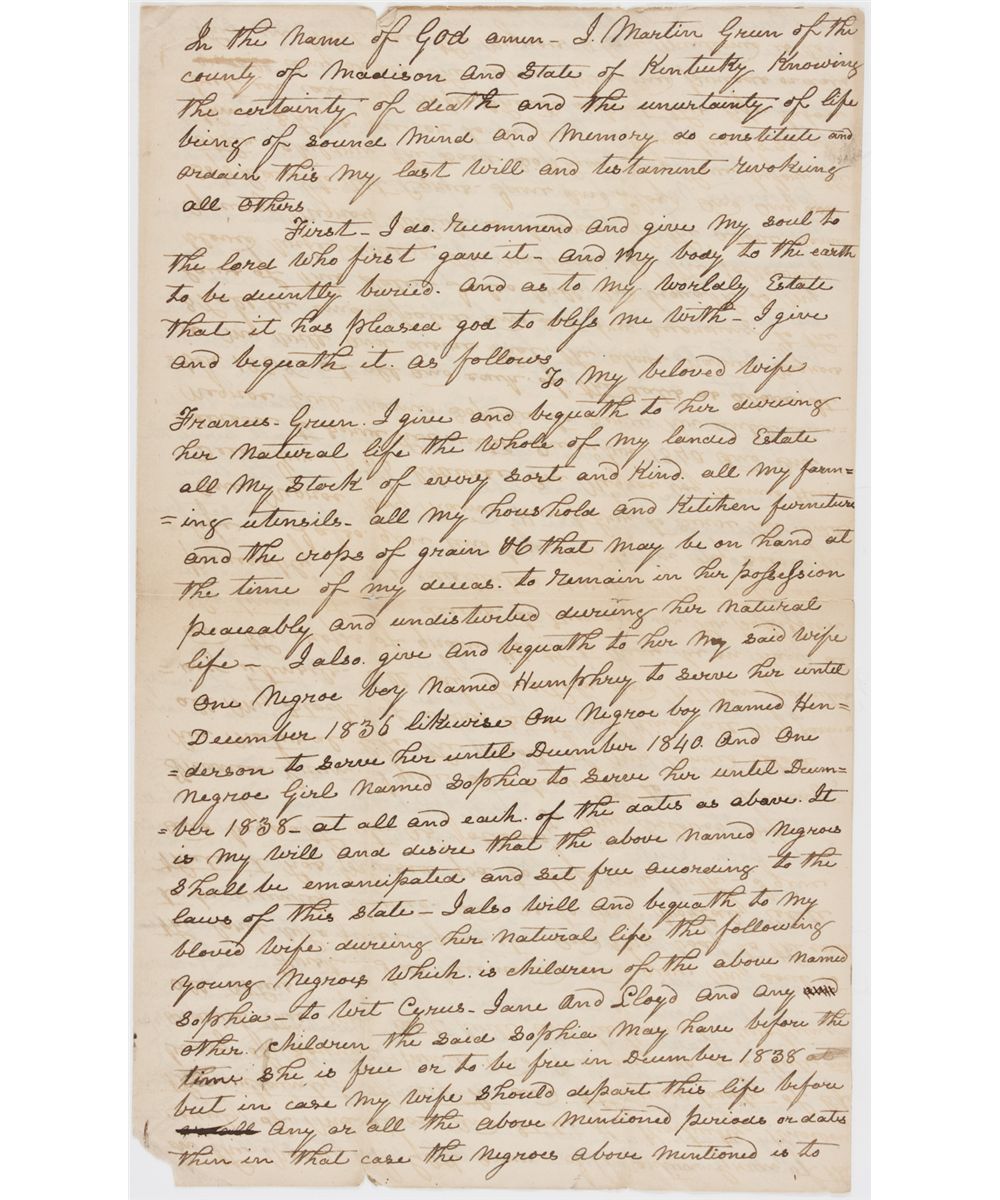 In the Name of God amen - I. Martin Green of the
county of Madison and State of Kentucky Knowing
the certainty of death and the uncertainty of life
being of sound Mind and Memory do constitute and
ordain this My last will and testament revokeing
all others
First - I do. recommend and give My soul to
the lord who first gave it - and My body to the earth
to be decently buried. and as to My worldly Estate
that it has pleased god to bless me with - I give
and bequath it. as follows
To My beloved wife
Frances - Green. I give and bequath to her dureing
her Natural life the whole of My landed Estate
all My Stock of every sort and Kind. all My farm=
=ing utensils - all My houshold and Kitchen furniture
and the crops of grain &c that may be on hand at
the time of my deceas. to remain in her possession
peaceably and undisturbed dureing her Natural
life - I also. give and bequath to her My said wife
One Negroe boy Named Humphrey to serve her until
December 1836 likewise One Negroe boy Named Hen=
=derson to serve her until December 1840. and One
Negroe Girl Named Sophia to serve her until Decem=
=ber 1838 - at all and each. of the dates as above. It
is My will and desire that the above Named Negroes
Shall be emancipated and set free acording to the
laws of this State - I also will and bequath to My
bloved wife dureing her Natural life the following
young Negroes which. is children of the above Named
Sophia - to wit Cyrus - Jane and Lloyd and any and
other. children the said Sophia May have before the
time She is free or to be free in December 1838 at
but in case My wife should depart this life before
or all any or all the above Mentioned periods or dates
then in that case the Negroes above Mentioned is to